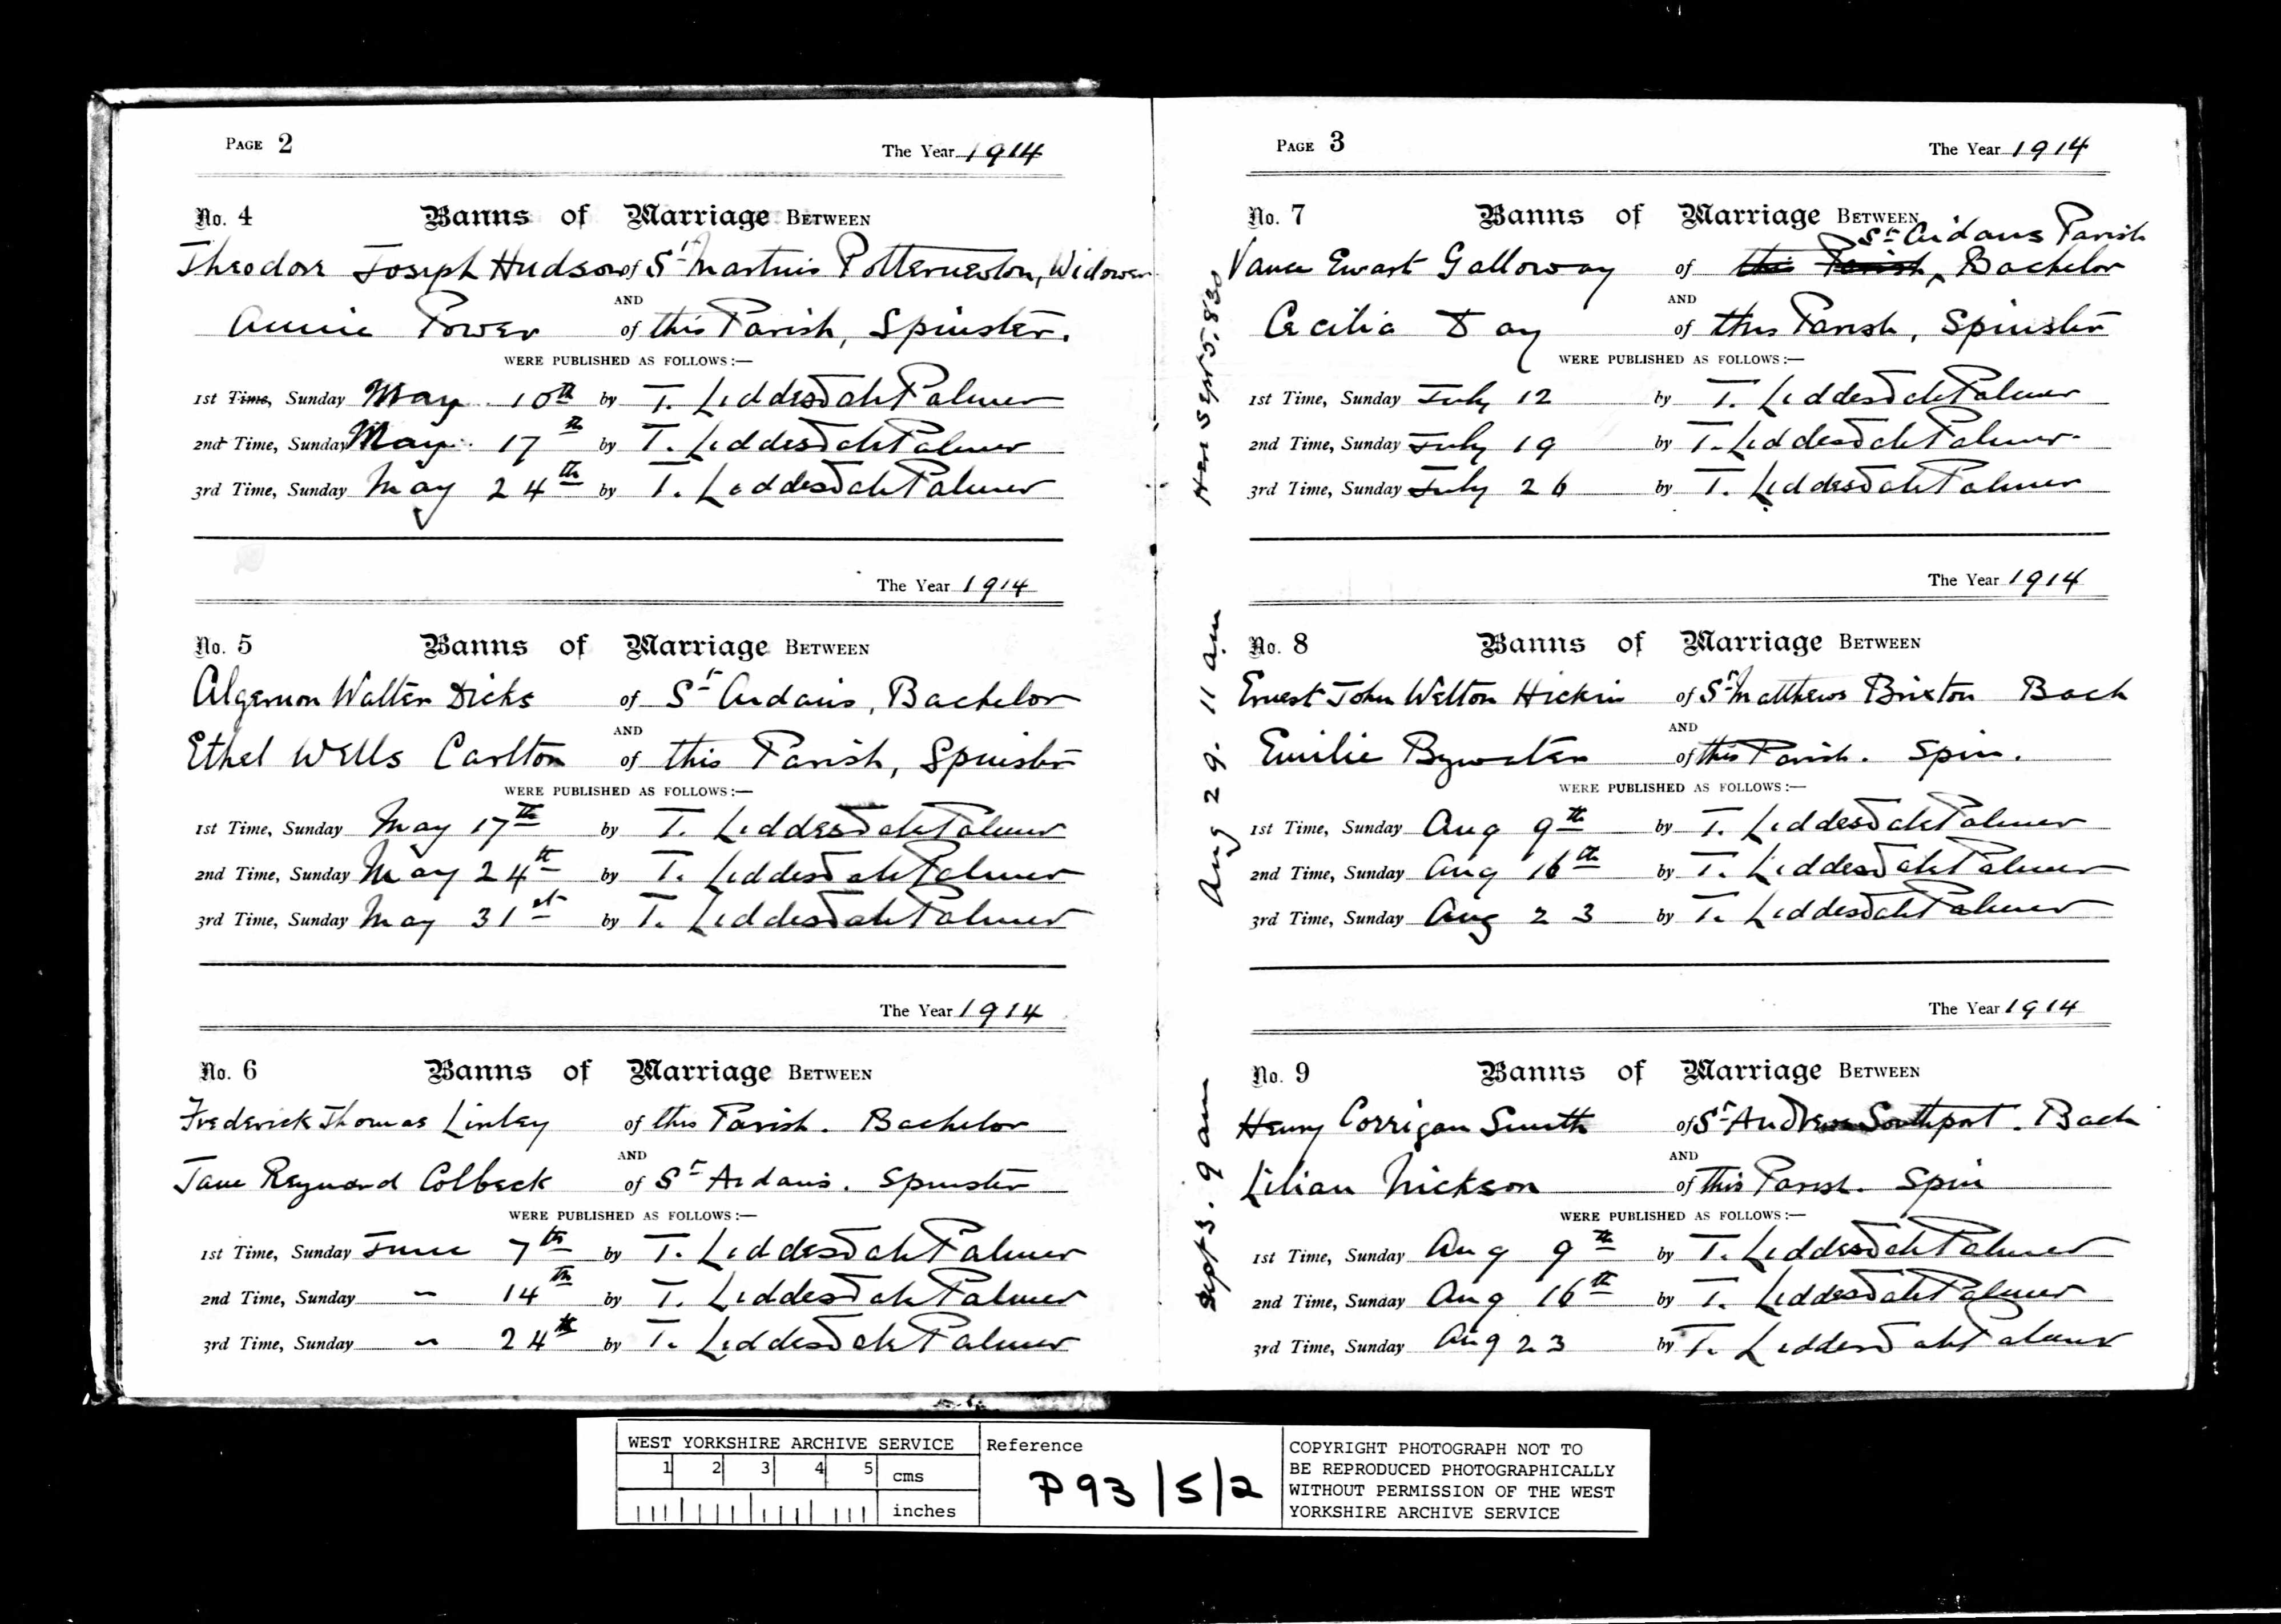 PAGE 2
The Year 1914
No. 4 Banns of Marriage BETWEEN
Theodore Joseph Hudson of St Martin's Potternewton, Widower
AND
Annie Power of this Parish, Spinster.
WERE PUBLISHED AS FOLLOWS :—
1st Time, Sunday May 10th by T. Liddesdale Palmer
2nd Time, Sunday May 17th by T. Liddesdale Palmer
3rd Time, Sunday May 24th by T. Liddesdale Palmer
The Year 1914
No. 5 Banns of Marriage BETWEEN
Algernon Walter Dicks of St Aidan's, Bachelor
AND
Ethel Wells Carlton of this Parish, Spinster
WERE PUBLISHED AS FOLLOWS :—
1st Time, Sunday May 17th by T. Liddesdale Palmer
2nd Time, Sunday May 24th by T. Liddesdale Palmer
3rd Time, Sunday May 31st by T. Liddesdale Palmer
The Year 1914
No. 6 Banns of Marriage BETWEEN
Frederick Thomas Linley of this Parish. Bachelor
AND
Jane Reynard Colbeck of St Aidan's. Spinster
WERE PUBLISHED AS FOLLOWS :—
1st Time, Sunday June 7th by T. Liddesdale Palmer
2nd Time, Sunday " 14th by T. Liddesdale Palmer
3rd Time, Sunday " 24th by T. Liddesdale Palmer
PAGE 3
The Year 1914
No. 7 Banns of Marriage BETWEEN
St Aidans Parish
Vance Ewart Galloway of this Parish, Bachelor
AND
Cecilia Day of this Parish, Spinster
WERE PUBLISHED AS FOLLOWS :—
1st Time, Sunday July 12 by T. Liddesdale Palmer
2nd Time, Sunday July 19 by T. Liddesdale Palmer
3rd Time, Sunday July 26 by T. Liddesdale Palmer
Sept 5. 8 30
The Year 1914
No. 8 Banns of Marriage BETWEEN
Ernest John Welton Hickin of St Matthews Brixton Bach
AND
Emilie Bywater of this Parish. Spin.
WERE PUBLISHED AS FOLLOWS :—
1st Time, Sunday Aug 9th by T. Liddesdale Palmer
2nd Time, Sunday Aug 16th by T. Liddesdale Palmer
3rd Time, Sunday Aug 23 by T. Liddesdale Palmer
Aug 29. 11 a.m
The Year 1914
No. 9 Banns of Marriage BETWEEN
Henry Corrigan Smith of St Andrews Southport. Bach
AND
Lilian Nickson of this Parish. Spin
WERE PUBLISHED AS FOLLOWS :—
1st Time, Sunday Aug 9th by T. Liddesdale Palmer
2nd Time, Sunday Aug 16th by T. Liddesdale Palmer
3rd Time, Sunday Aug 23 by T. Liddesdale Palmer
Sept 3. 9 am
WEST YORKSHIRE ARCHIVE SERVICE
1 2 3 4 5 cms
inches
Reference
P93/5/2
COPYRIGHT PHOTOGRAPH NOT TO
BE REPRODUCED PHOTOGRAPHICALLY
WITHOUT PERMISSION OF THE WEST
YORKSHIRE ARCHIVE SERVICE